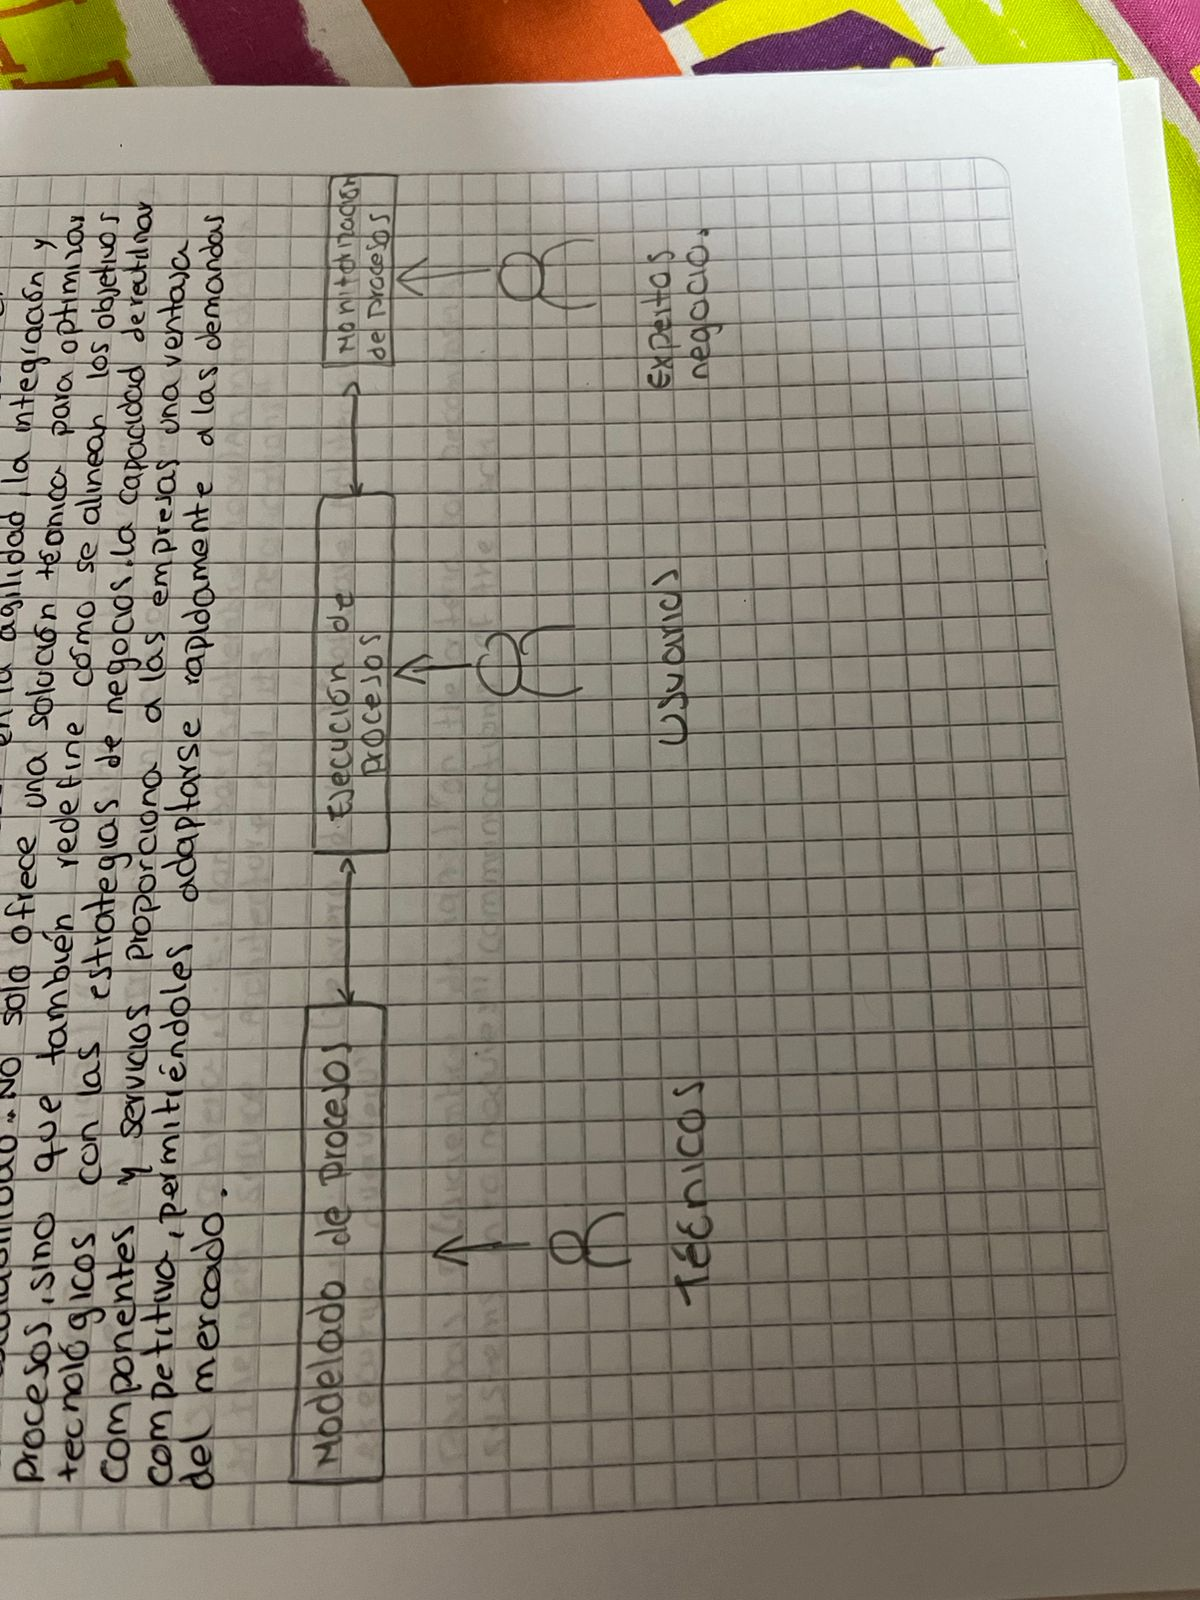 en la agilidad, la integración y
escalabilidad. No solo ofrece una solución técnica para optimizar
procesos, sino que también redefine cómo se alinean los objetivos
tecnológicos con las estrategias de negocios. la capacidad de reutilizar
componentes y servicios proporciona a las empresas una ventaja
competitiva, permitiéndoles adaptarse rapidamente a las demandas
del mercado.
Modelado de procesos
Ejecución de
procesos
Monitorización
de procesos
Técnicos
Usuarios
Expertos
negocio.